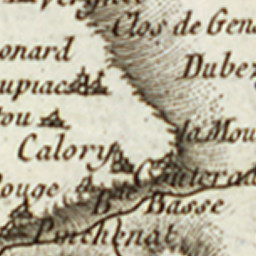 Clos de Gen
onard
Dube
upiac
tou
la Mou
Calory
Couterad
ouge
B.de Basse
Puechenat